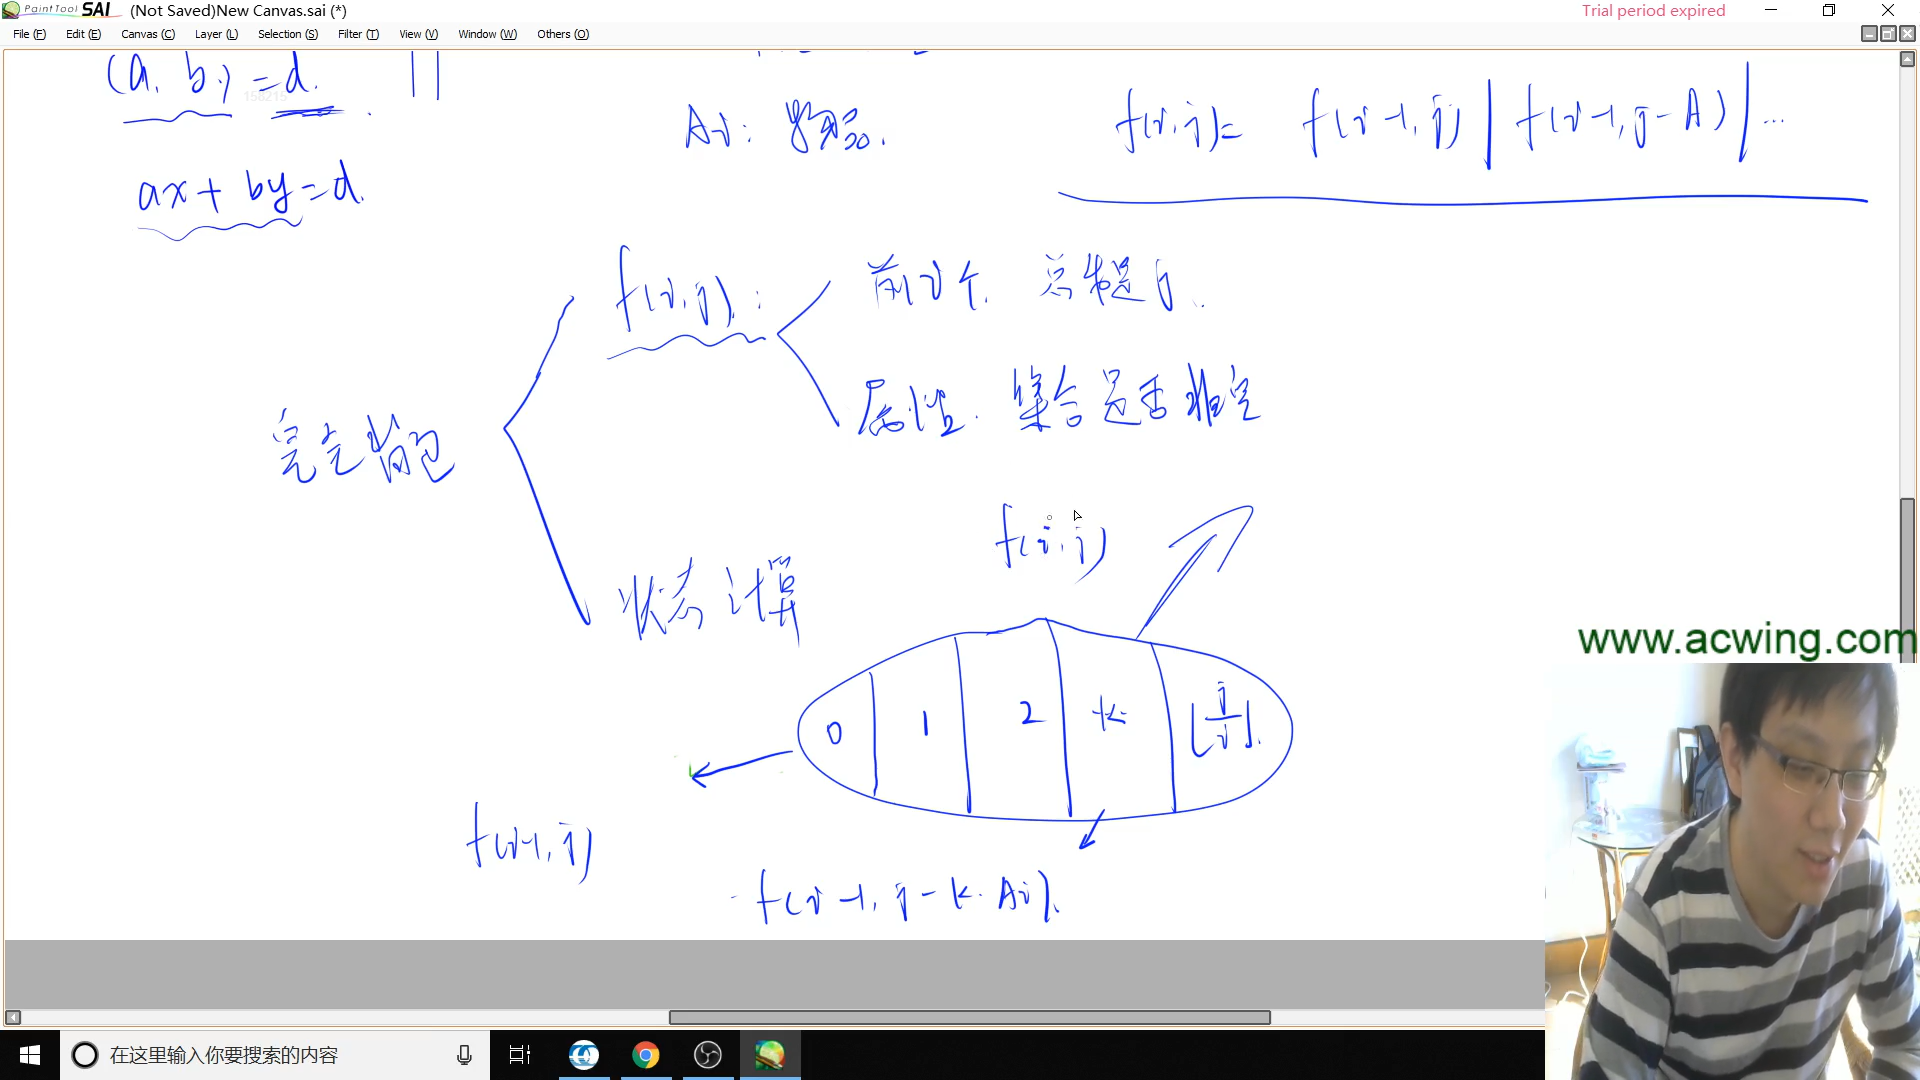 PaintTool SAI (Not Saved)New Canvas.sai (*) Trial period expired
File (F) Edit (E) Canvas (C) Layer (L) Selection (S) Filter (T) View (V) Window (W) Others (O)
(a, b) = d.
ax + by = d.
Ai: 物品.
f(i, j) = f(i-1, j) | f(i-1, j-A) | ...
完全背包
f(i, j):
前i个. 总和是j.
属性. 集合是否非空
状态计算
f(i, j)
0 1 2 k ⌊j/i⌋.
f(i-1, j)
f(i-1, j-k·Ai).
www.acwing.com
在这里输入你要搜索的内容